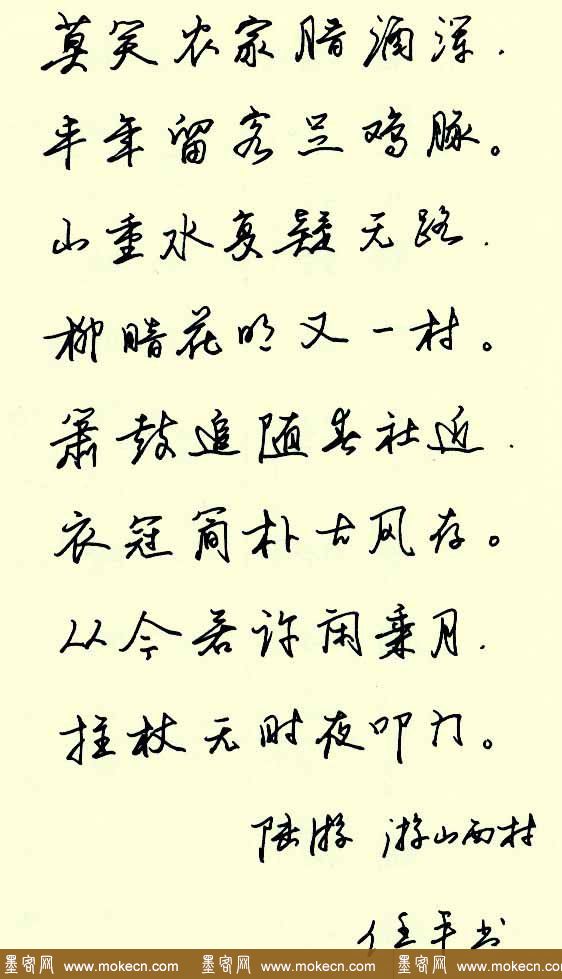 莫笑农家腊酒浑.
丰年留客足鸡豚。
山重水复疑无路.
柳暗花明又一村。
箫鼓追随春社近.
衣冠简朴古风存。
从今若许闲乘月.
拄杖无时夜叩门。
陆游 游山西村
任平书
墨客网 www.mokecn.com 墨客网 www.mokecn.com 墨客网 www.mokecn.com 墨客网